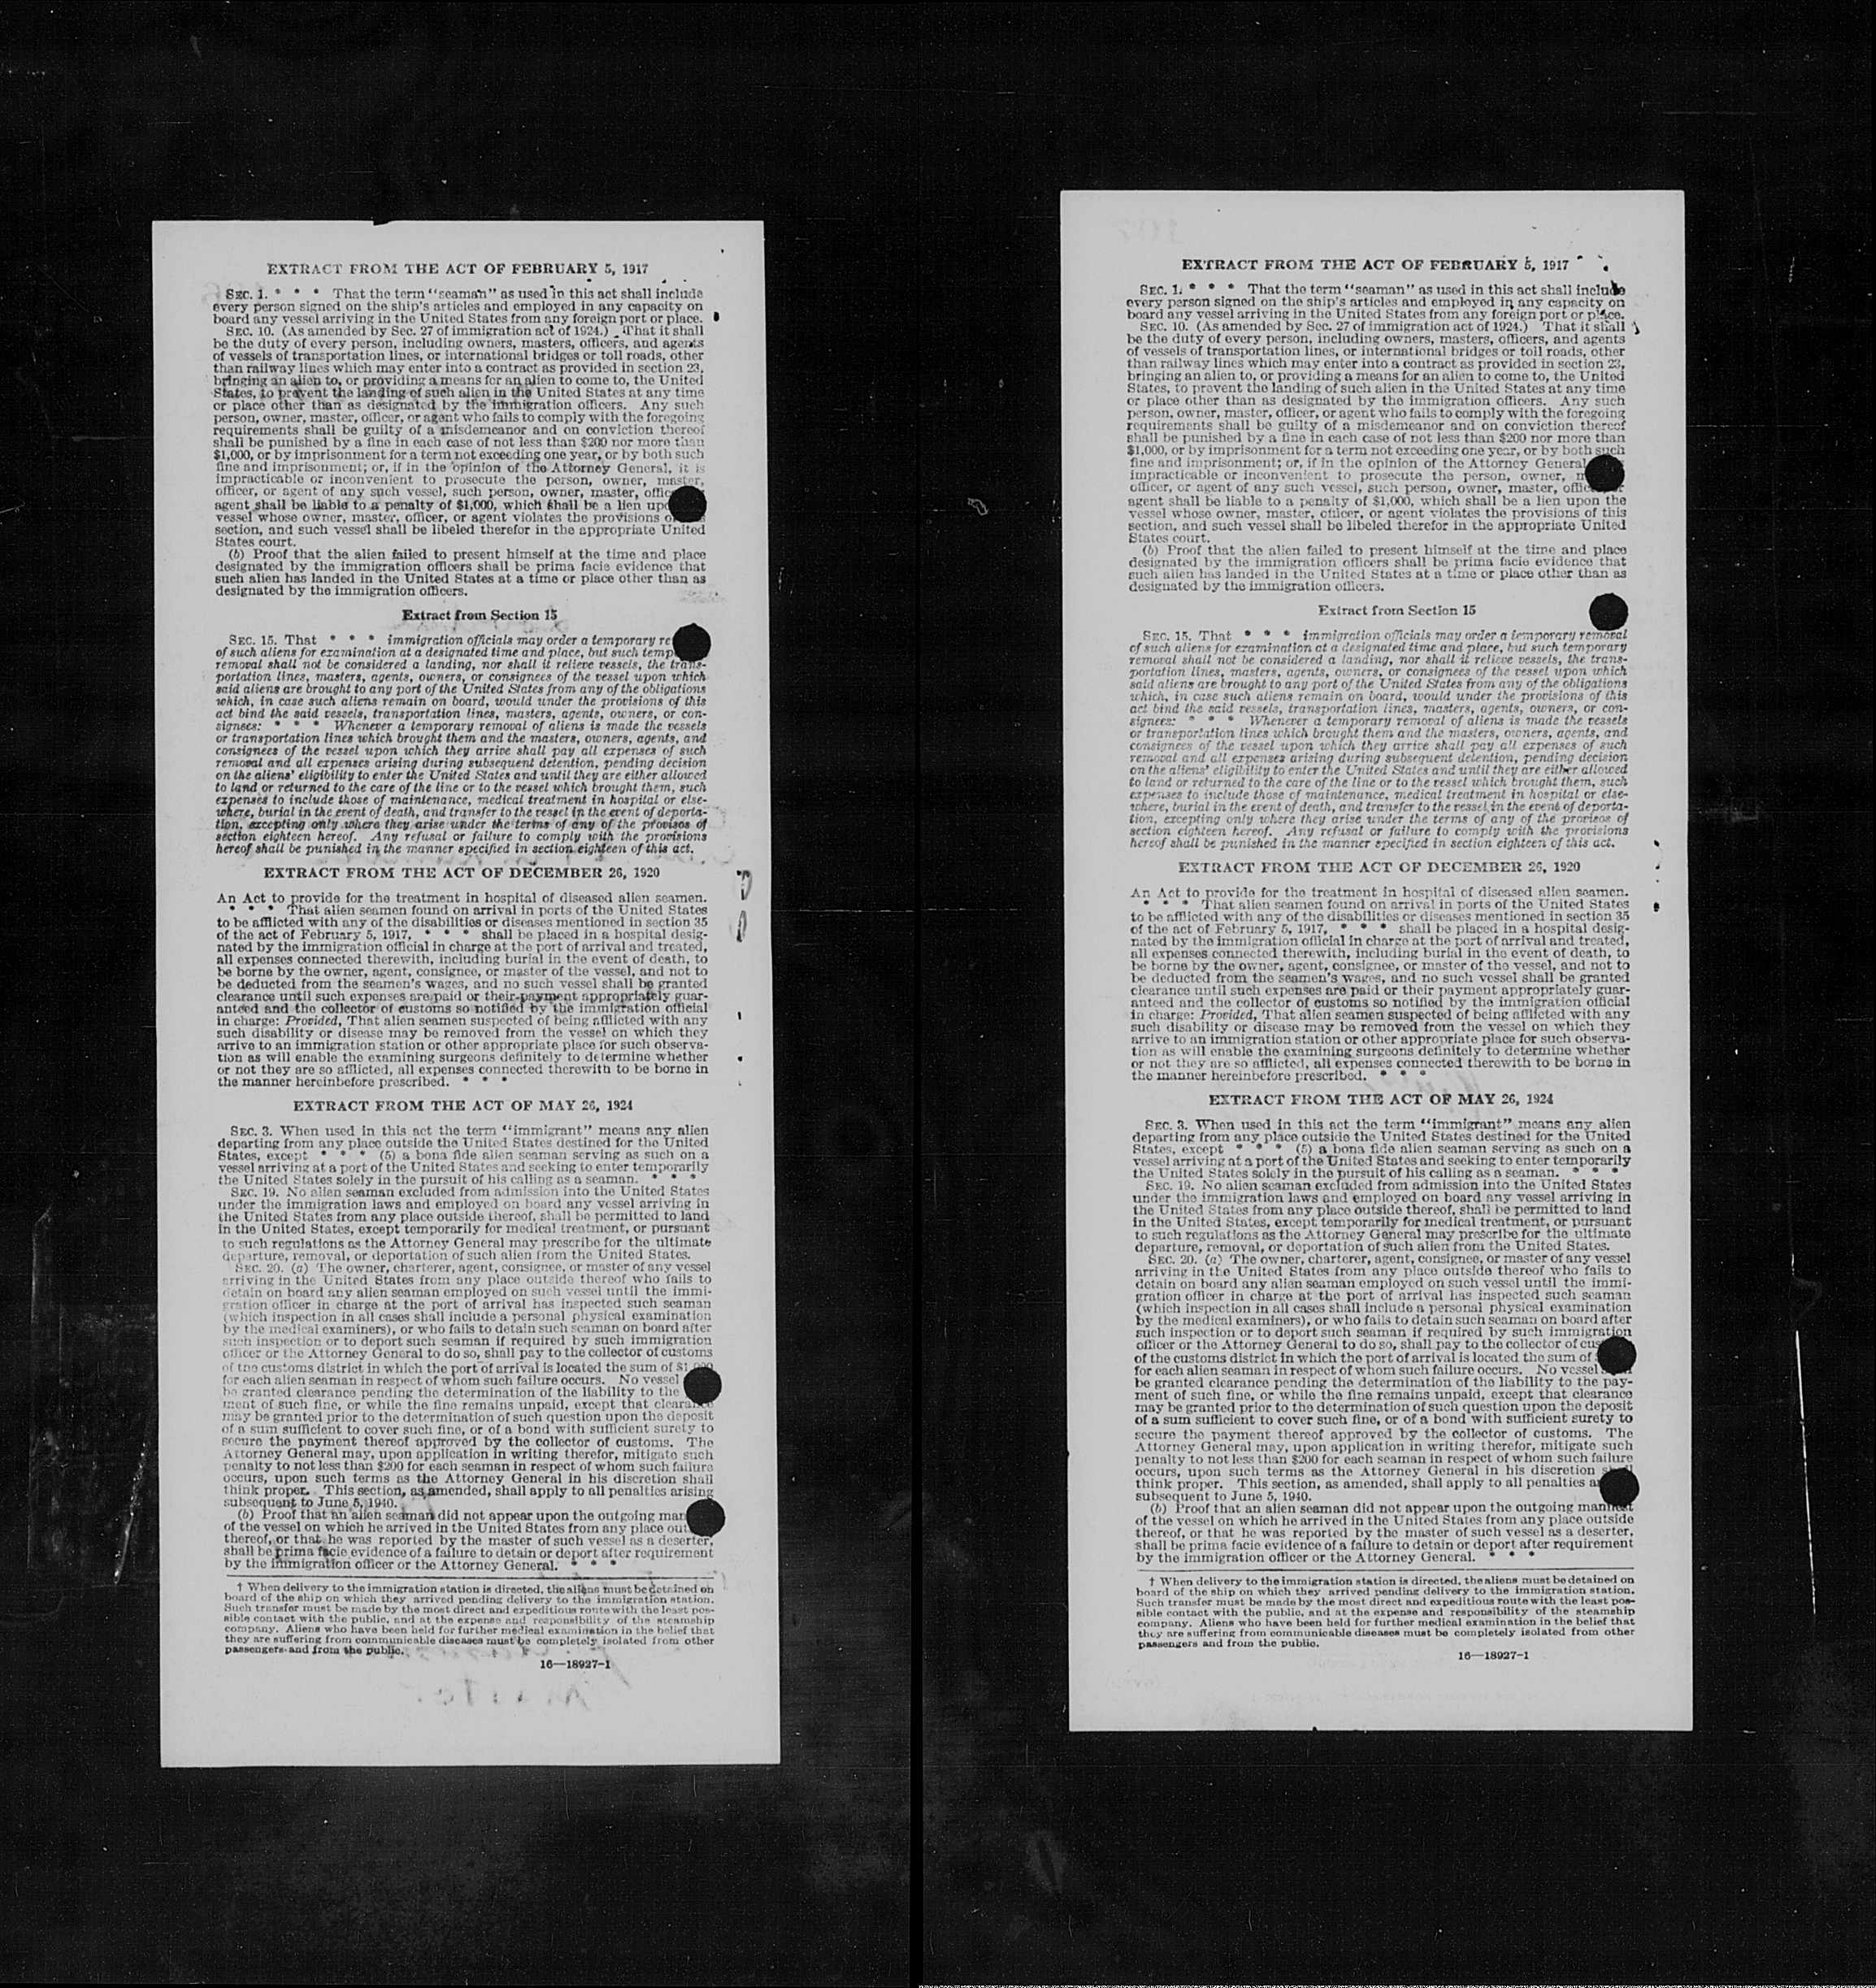 EXTRACT FROM THE ACT OF FEBRUARY 5, 1917
SEC. 1. * * * That the term "seaman" as used in this act shall include
every person signed on the ship's articles and employed in any capacity on
board any vessel arriving in the United States from any foreign port or place.
SEC. 10. (As amended by Sec. 27 of immigration act of 1924.) That it shall
be the duty of every person, including owners, masters, officers, and agents
of vessels of transportation lines, or international bridges or toll roads, other
than railway lines which may enter into a contract as provided in section 23,
bringing an alien to, or providing a means for an alien to come to, the United
States, to prevent the landing of such alien in the United States at any time
or place other than as designated by the immigration officers. Any such
person, owner, master, officer, or agent who fails to comply with the foregoing
requirements shall be guilty of a misdemeanor and on conviction thereof
shall be punished by a fine in each case of not less than $200 nor more than
$1,000, or by imprisonment for a term not exceeding one year, or by both such
fine and imprisonment; or, if in the opinion of the Attorney General, it is
impracticable or inconvenient to prosecute the person, owner, master,
officer, or agent of any such vessel, such person, owner, master, offic
agent shall be liable to a penalty of $1,000, which shall be a lien upo
vessel whose owner, master, officer, or agent violates the provisions o
section, and such vessel shall be libeled therefor in the appropriate United
States court.
(b) Proof that the alien failed to present himself at the time and place
designated by the immigration officers shall be prima facie evidence that
such alien has landed in the United States at a time or place other than as
designated by the immigration officers.
Extract from Section 15
SEC. 15. That * * * immigration officials may order a temporary re
of such aliens for examination at a designated time and place, but such temp
removal shall not be considered a landing, nor shall it relieve vessels, the trans-
portation lines, masters, agents, owners, or consignees of the vessel upon which
said aliens are brought to any port of the United States from any of the obligations
which, in case such aliens remain on board, would under the provisions of this
act bind the said vessels, transportation lines, masters, agents, owners, or con-
signees: * * * Whenever a temporary removal of aliens is made the vessels
or transportation lines which brought them and the masters, owners, agents, and
consignees of the vessel upon which they arrive shall pay all expenses of such
removal and all expenses arising during subsequent detention, pending decision
on the aliens' eligibility to enter the United States and until they are either allowed
to land or returned to the care of the line or to the vessel which brought them, such
expenses to include those of maintenance, medical treatment in hospital or else-
where, burial in the event of death, and transfer to the vessel in the event of deporta-
tion, excepting only where they arise under the terms of any of the provisos of
section eighteen hereof. Any refusal or failure to comply with the provisions
hereof shall be punished in the manner specified in section eighteen of this act.
EXTRACT FROM THE ACT OF DECEMBER 26, 1920
An Act to provide for the treatment in hospital of diseased alien seamen.
* * * That alien seamen found on arrival in ports of the United States
to be afflicted with any of the disabilities or diseases mentioned in section 35
of the act of February 5, 1917, * * * shall be placed in a hospital desig-
nated by the immigration official in charge at the port of arrival and treated,
all expenses connected therewith, including burial in the event of death, to
be borne by the owner, agent, consignee, or master of the vessel, and not to
be deducted from the seamen's wages, and no such vessel shall be granted
clearance until such expenses are paid or their payment appropriately guar-
anteed and the collector of customs so notified by the immigration official
in charge: Provided, That alien seamen suspected of being afflicted with any
such disability or disease may be removed from the vessel on which they
arrive to an immigration station or other appropriate place for such observa-
tion as will enable the examining surgeons definitely to determine whether
or not they are so afflicted, all expenses connected therewith to be borne in
the manner hereinbefore prescribed. * * *
EXTRACT FROM THE ACT OF MAY 26, 1924
SEC. 3. When used in this act the term "immigrant" means any alien
departing from any place outside the United States destined for the United
States, except * * * (5) a bona fide alien seaman serving as such on a
vessel arriving at a port of the United States and seeking to enter temporarily
the United States solely in the pursuit of his calling as a seaman. * * *
SEC. 19. No alien seaman excluded from admission into the United States
under the immigration laws and employed on board any vessel arriving in
the United States from any place outside thereof, shall be permitted to land
in the United States, except temporarily for medical treatment, or pursuant
to such regulations as the Attorney General may prescribe for the ultimate
departure, removal, or deportation of such alien from the United States.
SEC. 20. (a) The owner, charterer, agent, consignee, or master of any vessel
arriving in the United States from any place outside thereof who fails to
detain on board any alien seaman employed on such vessel until the immi-
gration officer in charge at the port of arrival has inspected such seaman
(which inspection in all cases shall include a personal physical examination
by the medical examiners), or who fails to detain such seaman on board after
such inspection or to deport such seaman if required by such immigration
officer or the Attorney General to do so, shall pay to the collector of customs
of the customs district in which the port of arrival is located the sum of $1,000
for each alien seaman in respect of whom such failure occurs. No vessel
be granted clearance pending the determination of the liability to the
ment of such fine, or while the fine remains unpaid, except that clearance
may be granted prior to the determination of such question upon the deposit
of a sum sufficient to cover such fine, or of a bond with sufficient surety to
secure the payment thereof approved by the collector of customs. The
Attorney General may, upon application in writing therefor, mitigate such
penalty to not less than $200 for each seaman in respect of whom such failure
occurs, upon such terms as the Attorney General in his discretion shall
think proper. This section, as amended, shall apply to all penalties arising
subsequent to June 5, 1940.
(b) Proof that an alien seaman did not appear upon the outgoing man
of the vessel on which he arrived in the United States from any place out
thereof, or that he was reported by the master of such vessel as a deserter,
shall be prima facie evidence of a failure to detain or deport after requirement
by the immigration officer or the Attorney General. * * *
† When delivery to the immigration station is directed, the aliens must be detained on
board of the ship on which they arrived pending delivery to the immigration station.
Such transfer must be made by the most direct and expeditious route with the least pos-
sible contact with the public, and at the expense and responsibility of the steamship
company. Aliens who have been held for further medical examination in the belief that
they are suffering from communicable diseases must be completely isolated from other
passengers and from the public.
16—18927-1
EXTRACT FROM THE ACT OF FEBRUARY 5, 1917
SEC. 1. * * * That the term "seaman" as used in this act shall include
every person signed on the ship's articles and employed in any capacity on
board any vessel arriving in the United States from any foreign port or place.
SEC. 10. (As amended by Sec. 27 of immigration act of 1924.) That it shall
be the duty of every person, including owners, masters, officers, and agents
of vessels of transportation lines, or international bridges or toll roads, other
than railway lines which may enter into a contract as provided in section 23,
bringing an alien to, or providing a means for an alien to come to, the United
States, to prevent the landing of such alien in the United States at any time
or place other than as designated by the immigration officers. Any such
person, owner, master, officer, or agent who fails to comply with the foregoing
requirements shall be guilty of a misdemeanor and on conviction thereof
shall be punished by a fine in each case of not less than $200 nor more than
$1,000, or by imprisonment for a term not exceeding one year, or by both such
fine and imprisonment; or, if in the opinion of the Attorney General
impracticable or inconvenient to prosecute the person, owner, m
officer, or agent of any such vessel, such person, owner, master, office
agent shall be liable to a penalty of $1,000, which shall be a lien upon the
vessel whose owner, master, officer, or agent violates the provisions of this
section, and such vessel shall be libeled therefor in the appropriate United
States court.
(b) Proof that the alien failed to present himself at the time and place
designated by the immigration officers shall be prima facie evidence that
such alien has landed in the United States at a time or place other than as
designated by the immigration officers.
Extract from Section 15
SEC. 15. That * * * immigration officials may order a temporary removal
of such aliens for examination at a designated time and place, but such temporary
removal shall not be considered a landing, nor shall it relieve vessels, the trans-
portation lines, masters, agents, owners, or consignees of the vessel upon which
said aliens are brought to any port of the United States from any of the obligations
which, in case such aliens remain on board, would under the provisions of this
act bind the said vessels, transportation lines, masters, agents, owners, or con-
signees: * * * Whenever a temporary removal of aliens is made the vessels
or transportation lines which brought them and the masters, owners, agents, and
consignees of the vessel upon which they arrive shall pay all expenses of such
removal and all expenses arising during subsequent detention, pending decision
on the aliens' eligibility to enter the United States and until they are either allowed
to land or returned to the care of the line or to the vessel which brought them, such
expenses to include those of maintenance, medical treatment in hospital or else-
where, burial in the event of death, and transfer to the vessel in the event of deporta-
tion, excepting only where they arise under the terms of any of the provisos of
section eighteen hereof. Any refusal or failure to comply with the provisions
hereof shall be punished in the manner specified in section eighteen of this act.
EXTRACT FROM THE ACT OF DECEMBER 26, 1920
An Act to provide for the treatment in hospital of diseased alien seamen.
* * * That alien seamen found on arrival in ports of the United States
to be afflicted with any of the disabilities or diseases mentioned in section 35
of the act of February 5, 1917, * * * shall be placed in a hospital desig-
nated by the immigration official in charge at the port of arrival and treated,
all expenses connected therewith, including burial in the event of death, to
be borne by the owner, agent, consignee, or master of the vessel, and not to
be deducted from the seamen's wages, and no such vessel shall be granted
clearance until such expenses are paid or their payment appropriately guar-
anteed and the collector of customs so notified by the immigration official
in charge: Provided, That alien seamen suspected of being afflicted with any
such disability or disease may be removed from the vessel on which they
arrive to an immigration station or other appropriate place for such observa-
tion as will enable the examining surgeons definitely to determine whether
or not they are so afflicted, all expenses connected therewith to be borne in
the manner hereinbefore prescribed. * * *
EXTRACT FROM THE ACT OF MAY 26, 1924
SEC. 3. When used in this act the term "immigrant" means any alien
departing from any place outside the United States destined for the United
States, except * * * (5) a bona fide alien seaman serving as such on a
vessel arriving at a port of the United States and seeking to enter temporarily
the United States solely in the pursuit of his calling as a seaman. * * *
SEC. 19. No alien seaman excluded from admission into the United States
under the immigration laws and employed on board any vessel arriving in
the United States from any place outside thereof, shall be permitted to land
in the United States, except temporarily for medical treatment, or pursuant
to such regulations as the Attorney General may prescribe for the ultimate
departure, removal, or deportation of such alien from the United States.
SEC. 20. (a) The owner, charterer, agent, consignee, or master of any vessel
arriving in the United States from any place outside thereof who fails to
detain on board any alien seaman employed on such vessel until the immi-
gration officer in charge at the port of arrival has inspected such seaman
(which inspection in all cases shall include a personal physical examination
by the medical examiners), or who fails to detain such seaman on board after
such inspection or to deport such seaman if required by such immigration
officer or the Attorney General to do so, shall pay to the collector of cus
of the customs district in which the port of arrival is located the sum of
for each alien seaman in respect of whom such failure occurs. No vessel
be granted clearance pending the determination of the liability to the pay-
ment of such fine, or while the fine remains unpaid, except that clearance
may be granted prior to the determination of such question upon the deposit
of a sum sufficient to cover such fine, or of a bond with sufficient surety to
secure the payment thereof approved by the collector of customs. The
Attorney General may, upon application in writing therefor, mitigate such
penalty to not less than $200 for each seaman in respect of whom such failure
occurs, upon such terms as the Attorney General in his discretion shall
think proper. This section, as amended, shall apply to all penalties a
subsequent to June 5, 1940.
(b) Proof that an alien seaman did not appear upon the outgoing manifest
of the vessel on which he arrived in the United States from any place outside
thereof, or that he was reported by the master of such vessel as a deserter,
shall be prima facie evidence of a failure to detain or deport after requirement
by the immigration officer or the Attorney General. * * *
† When delivery to the immigration station is directed, the aliens must be detained on
board of the ship on which they arrived pending delivery to the immigration station.
Such transfer must be made by the most direct and expeditious route with the least pos-
sible contact with the public, and at the expense and responsibility of the steamship
company. Aliens who have been held for further medical examination in the belief that
they are suffering from communicable diseases must be completely isolated from other
passengers and from the public.
16—18927-1